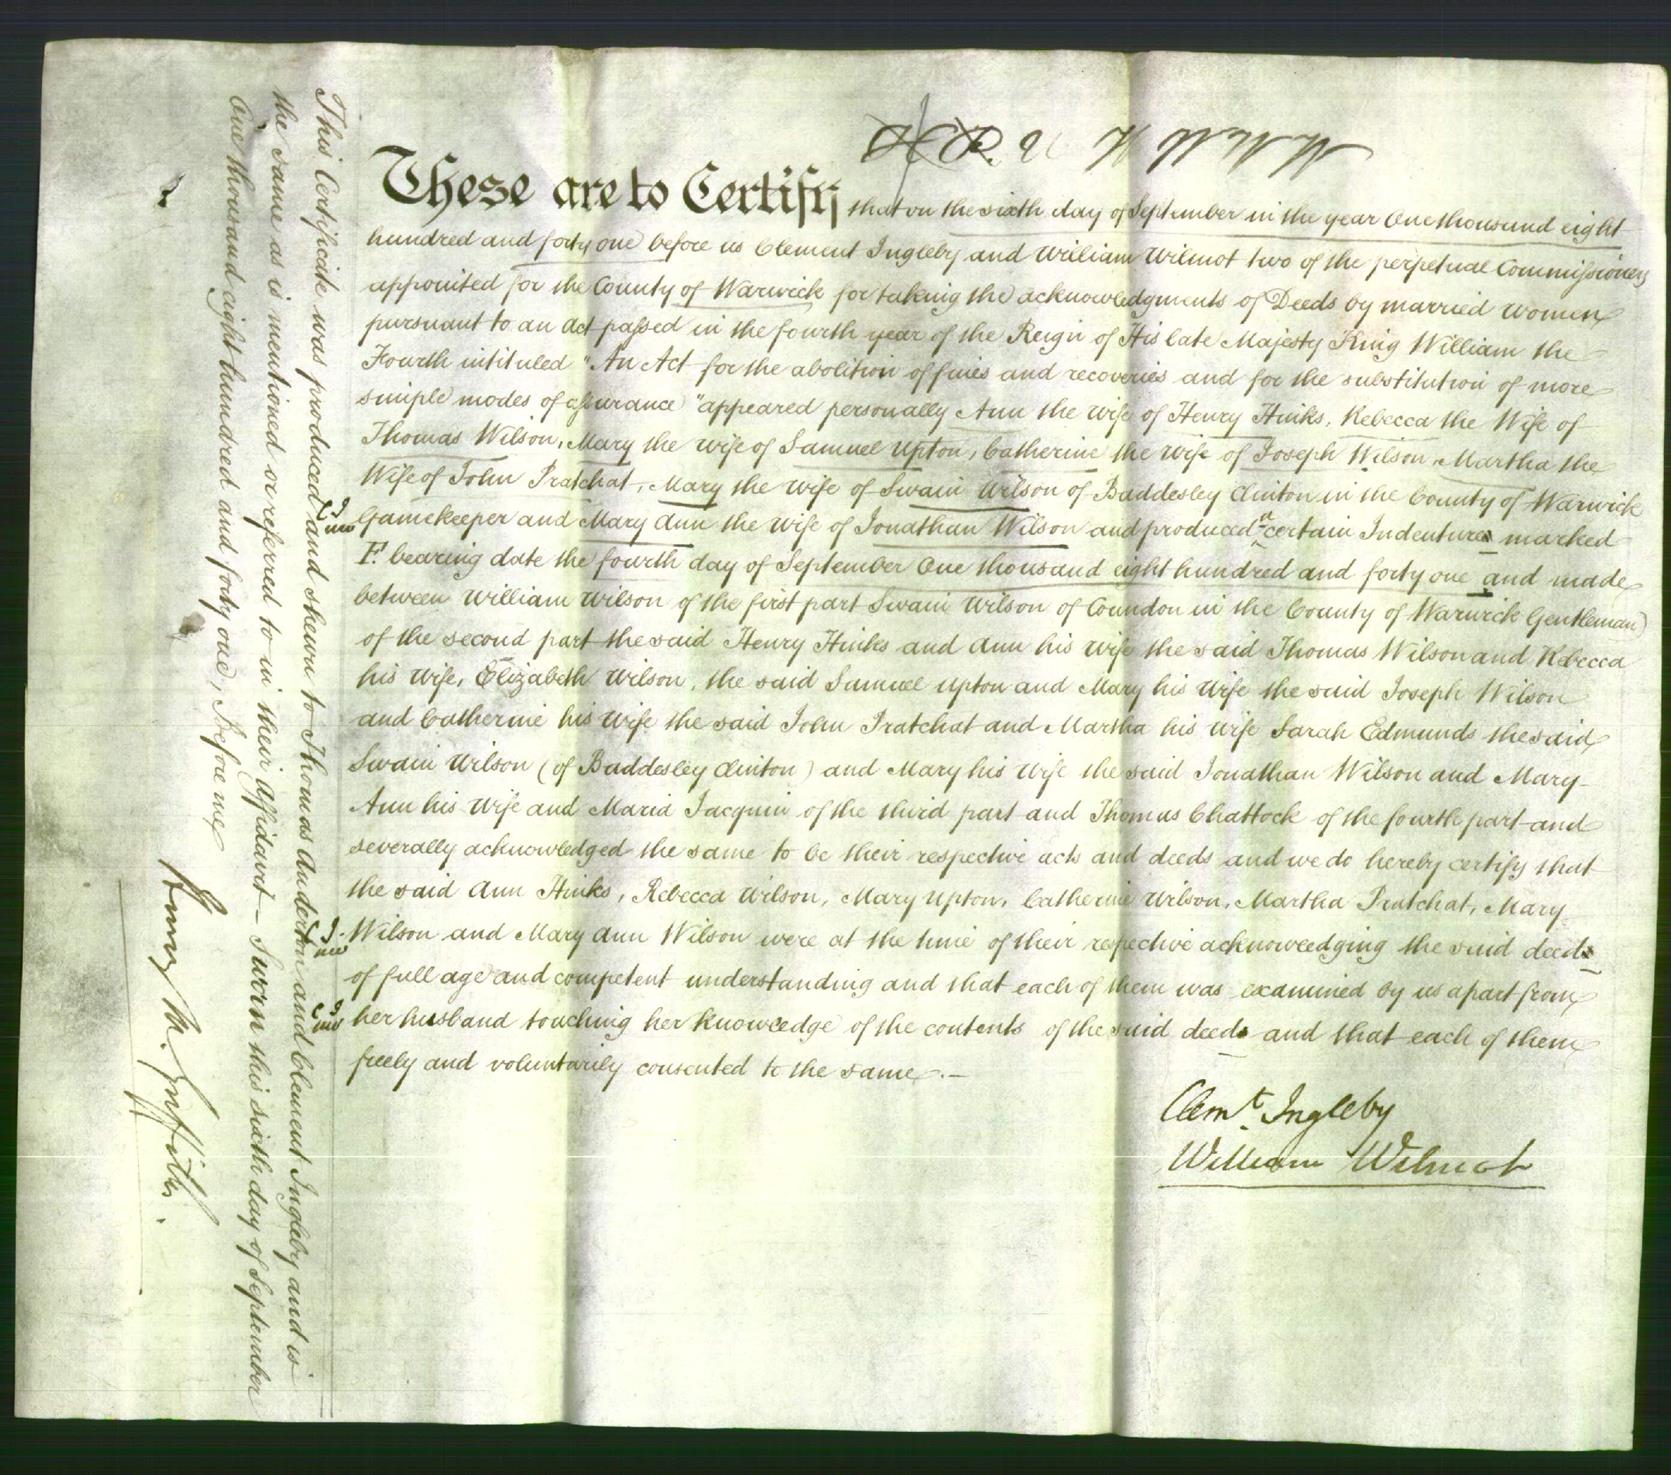 These are to Certify that on the sixth day of September in the year One thousand eight
hundred and forty one before us Clement Ingleby and William Wilmot two of the perpetual Commissioners
appointed for the County of Warwick for taking the acknowledgments of Deeds by married women
pursuant to an Act passed in the fourth year of the Reign of His late Majesty King William the
Fourth intituled "An Act for the abolition of fines and recoveries and for the substitution of more
simple modes of assurance" appeared personally Ann the wife of Henry Hinks, Rebecca the Wife of
Thomas Wilson, Mary the wife of Samuel Upton, Catherine the wife of Joseph Wilson, Martha the
Wife of John Pratchat, Mary the wife of Swain Wilson of Baddesley Clinton in the County of Warwick
Gamekeeper and Mary Ann the wife of Jonathan Wilson and produced a certain Indenture marked
F. bearing date the fourth day of September One thousand eight hundred and forty one and made
between William Wilson of the first part Swain Wilson of Coundon in the County of Warwick Gentleman
of the second part the said Henry Hinks and Ann his wife the said Thomas Wilson and Rebecca
his Wife, Elizabeth Wilson, the said Samuel Upton and Mary his Wife the said Joseph Wilson
and Catherine his Wife the said John Pratchat and Martha his wife Sarah Edmunds the said
Swain Wilson (of Baddesley Clinton) and Mary his Wife the said Jonathan Wilson and Mary
Ann his Wife and Maria Jacquin of the third part and Thomas Chattock of the fourth part and
severally acknowledged the same to be their respective acts and deeds and we do hereby certify that
the said Ann Hinks, Rebecca Wilson, Mary Upton, Catherine Wilson, Martha Pratchat, Mary
Wilson and Mary Ann Wilson were at the time of their respective acknowledging the said deed
of full age and competent understanding and that each of them was examined by us apart from
her husband touching her knowledge of the contents of the said deed and that each of them
freely and voluntarily consented to the same.—
Clemt. Ingleby
William Wilmot
This Certificate was produced and shewn to Thomas Anderton and Clement Ingleby and is
the same as is mentioned or referred to in their affidavit — Sworn this sixth day of September
One thousand eight hundred and forty one, Before me